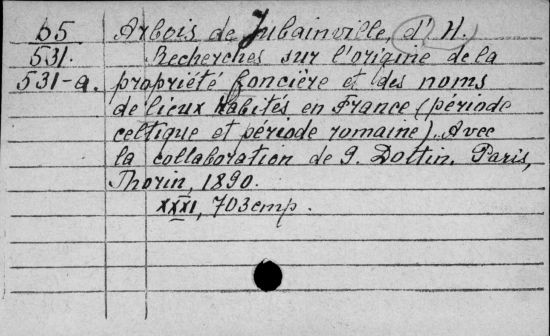 65 Arbois de Jubainville, d' H.
531. Recherches sur l'origine de la
531-a. propriété foncière et des noms
de lieux habités en France (période
celtique et période romaine). Avec
la collaboration de G. Dottin. Paris,
Thorin, 1890.
XXXI, 703 cmp.